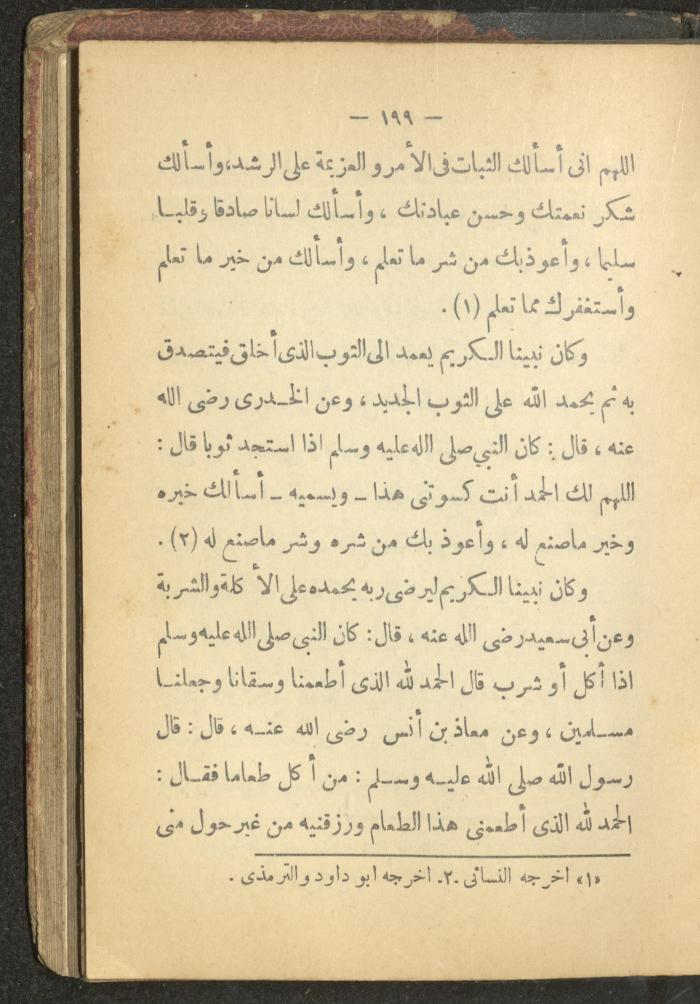 — ١٩٩ —
اللهم انى أسألك الثبات فى الأمر و العزيمة على الرشد، وأسألك
شكر نعمتك وحسن عبادتك ، وأسألك لسانا صادقا وقلبا
سليما ، وأعوذبك من شر ما تعلم ، وأسألك من خير ما تعلم
وأستغفرك مما تعلم (١) .
وكان نبينا الكريم يعمد الى الثوب الذى أخلق فيتصدق
به ثم يحمد الله على الثوب الجديد ، وعن الخدرى رضى الله
عنه ، قال : كان النبي صلى الله عليه وسلم اذا استجد ثوبا قال :
اللهم لك الحمد أنت كسوتنى هذا ـ ويسميه ـ أسألك خيره
وخير ماصنع له ، وأعوذ بك من شره وشر ماصنع له (٢) .
وكان نبينا الكريم ليرضى ربه يحمده على الأكلة والشربة
وعن أبى سعيد رضى الله عنه ، قال : كان النبى صلى الله عليه وسلم
اذا أكل أو شرب قال الحمد لله الذى أطعمنا وسقانا وجعلنا
مسلمين ، وعن معاذ بن أنس رضى الله عنه ، قال : قال
رسول الله صلى الله عليه وسلم : من أكل طعاما فقال :
الحمد لله الذى أطعمنى هذا الطعام ورزقنيه من غير حول منى
«١» اخرجه النسائى .٢. اخرجه ابو داود والترمذى .